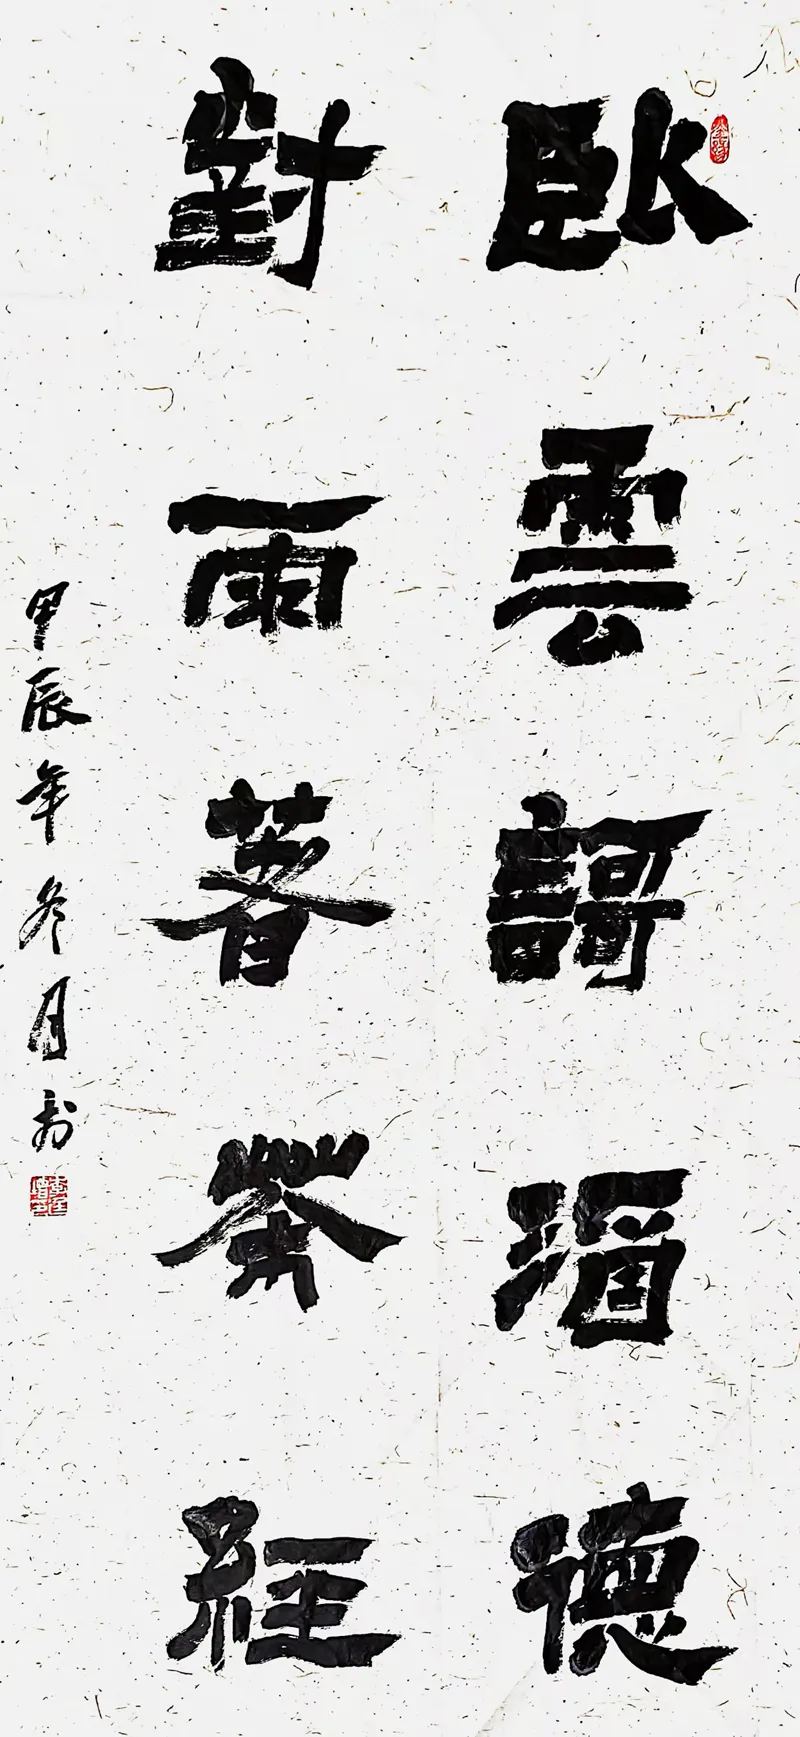 臥雲謌酒德
對雨著茶經
甲辰年冬月